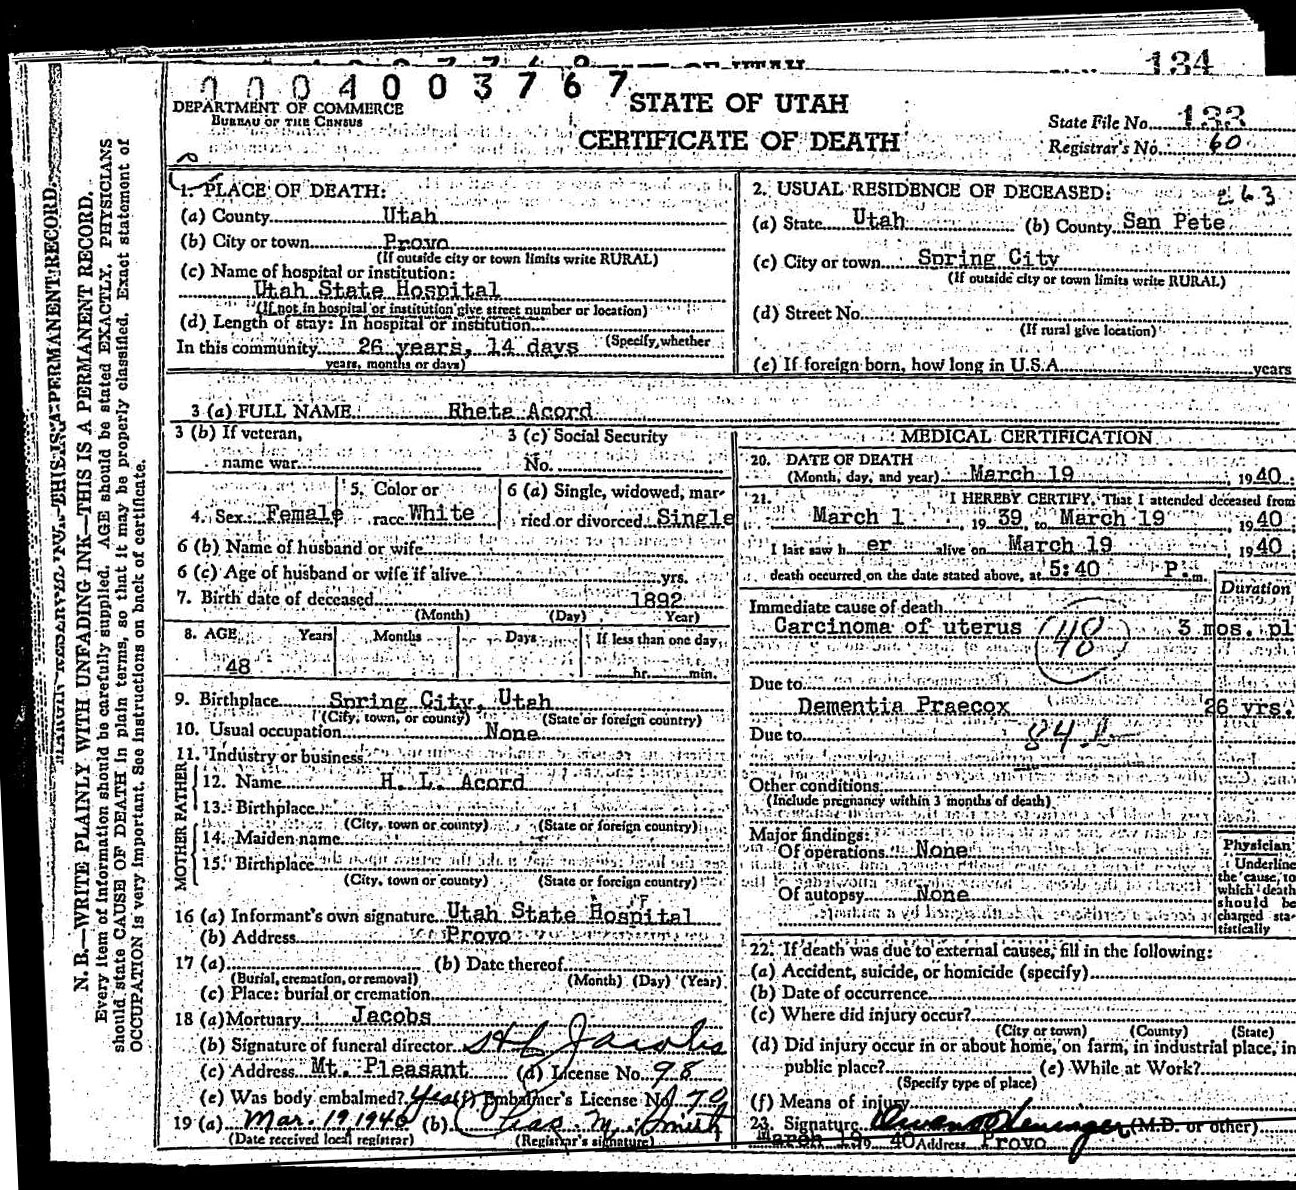 134
0004003767
DEPARTMENT OF COMMERCE
BUREAU OF THE CENSUS
STATE OF UTAH
CERTIFICATE OF DEATH
State File No. 133
Registrar's No. 60
N. B.—WRITE PLAINLY WITH UNFADING INK—THIS IS A PERMANENT RECORD.
Every item of information should be carefully supplied. AGE should be stated EXACTLY. PHYSICIANS
should state CAUSE OF DEATH in plain terms, so that it may be properly classified. Exact statement of
OCCUPATION is very important. See instructions on back of certificate.
1. PLACE OF DEATH:
(a) County Utah
(b) City or town Provo
(If outside city or town limits write RURAL)
(c) Name of hospital or institution:
Utah State Hospital
(If not in hospital or institution give street number or location)
(d) Length of stay: In hospital or institution
In this community 26 years, 14 days (Specify whether
years, months or days)
2. USUAL RESIDENCE OF DECEASED:
(a) State Utah (b) County San Pete
(c) City or town Spring City
(If outside city or town limits write RURAL)
(d) Street No.
(If rural give location)
(e) If foreign born, how long in U.S.A. years
3 (a) FULL NAME Rheta Acord
3 (b) If veteran,
name war
3 (c) Social Security
No.
4. Sex Female
5. Color or
race White
6 (a) Single, widowed, mar-
ried or divorced Single
6 (b) Name of husband or wife
6 (c) Age of husband or wife if alive yrs.
7. Birth date of deceased 1892
(Month) (Day) Year)
8. AGE Years Months Days If less than one day
48 hr. min.
9. Birthplace Spring City, Utah
(City, town, or county) (State or foreign country)
10. Usual occupation None
11. Industry or business
FATHER
12. Name H. L. Acord
13. Birthplace
(City, town or county) (State or foreign country)
MOTHER
14. Maiden name
15. Birthplace
(City, town or county) (State or foreign country)
16 (a) Informant's own signature Utah State Hospital
(b) Address Provo
17 (a) (b) Date thereof
(Burial, cremation, or removal) (Month) (Day) (Year)
(c) Place: burial or cremation
18 (a) Mortuary Jacobs
(b) Signature of funeral director Jacobs
(c) Address Mt. Pleasant (d) License No. 98
(e) Was body embalmed? Yes (f) Embalmer's License No. 70
19 (a) Mar. 19, 1940 (b) Chas. M. Smith
(Date received local registrar) (Registrar's signature)
MEDICAL CERTIFICATION
20. DATE OF DEATH
(Month, day, and year) March 19, 1940
21. I HEREBY CERTIFY, That I attended deceased from
March 1, 1939, to March 19, 1940
I last saw h er alive on March 19, 1940
death occurred on the date stated above, at 5:40 P. m.
Duration
Immediate cause of death
Carcinoma of uterus 48 3 mos. pl
Due to
Dementia Praecox 26 yrs.
Due to
Other conditions
(Include pregnancy within 3 months of death)
Major findings:
Of operations None
Of autopsy None
Physician
Underline
the cause to
which death
should be
charged sta-
tistically
22. If death was due to external causes, fill in the following:
(a) Accident, suicide, or homicide (specify)
(b) Date of occurrence
(c) Where did injury occur?
(City or town) (County) (State)
(d) Did injury occur in or about home, on farm, in industrial place, in
public place? (e) While at Work?
(Specify type of place)
(f) Means of injury
23. Signature (M.D. or other)
March 19, 40 Address Provo